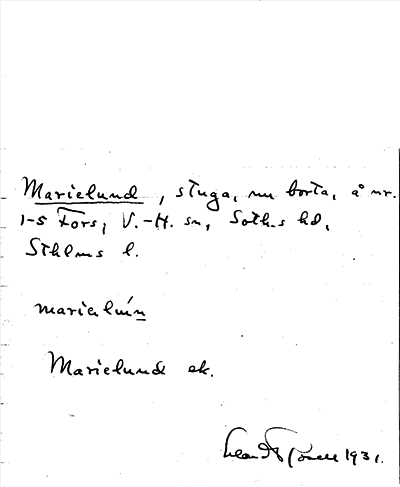 Marielund, stuga, nu borta, å nr.
1-5 Fors, V.-H. sn, Soth.s hd,
Sthlms l.
marieluń
Marielund ek.
1931.